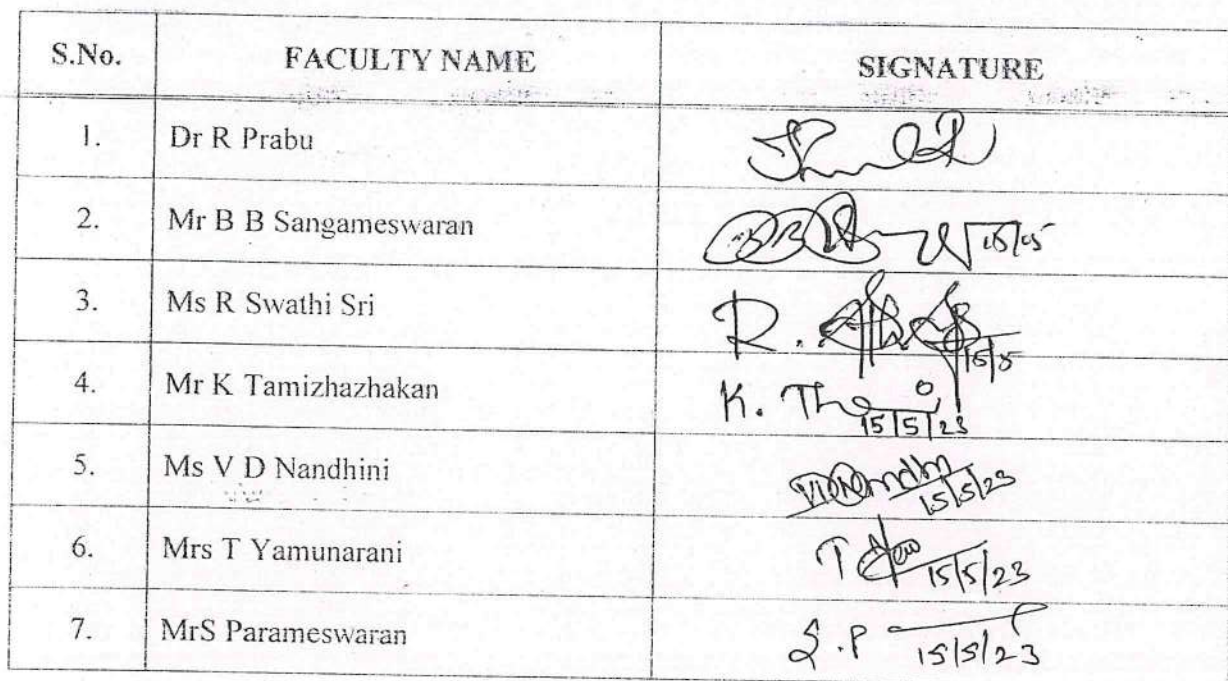 S.No. FACULTY NAME SIGNATURE
1. Dr R Prabu
2. Mr B B Sangameswaran 15/05
3. Ms R Swathi Sri R. 15/5
4. Mr K Tamizhazhakan K. 15/5/23
5. Ms V D Nandhini 15/5/23
6. Mrs T Yamunarani T 15/5/23
7. MrS Parameswaran S.P 15/5/23